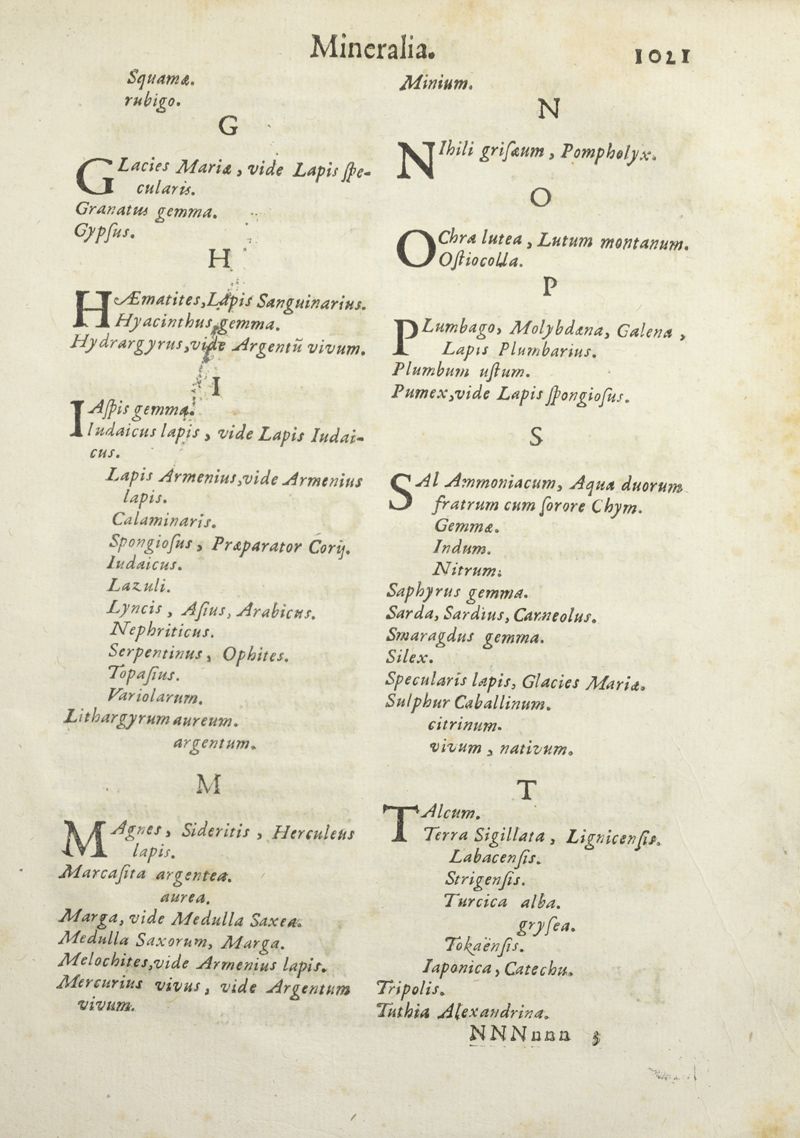 Mineralia.
1021
Squamæ.
rubigo.
G
GLacies Mariæ, vide Lapis ſpe-
cularis.
Granatus gemma.
Gypſus.
H
HÆmatites, Lapis Sanguinarius.
Hyacinthus gemma.
Hydrargyrus, vide Argentũ vivum.
I
IAſpis gemma.
Iudaicus lapis, vide Lapis Iudai-
cus.
Lapis Armenius, vide Armenius
lapis.
Calaminaris.
Spongioſus, Præparator Corij.
Iudaicus.
Lazuli.
Lyncis, Aſius, Arabicus.
Nephriticus.
Serpentinus, Ophites.
Topaſius.
Variolarum.
Lithargyrum aureum.
argentum.
M
MAgnes, Sideritis, Herculeus
lapis.
Marcaſita argentea.
aurea.
Marga, vide Medulla Saxea.
Medulla Saxorum, Marga.
Melochites, vide Armenius lapis.
Mercurius vivus, vide Argentum
vivum.
Minium.
N
NIhili griſæum, Pompholyx.
O
OChra lutea, Lutum montanum.
Oſtiocolla.
P
PLumbago, Molybdæna, Galena,
Lapis Plumbarius.
Plumbum uſtum.
Pumex, vide Lapis ſpongioſus.
S
SAl Ammoniacum, Aqua duorum
fratrum cum ſorore Chym.
Gemmæ.
Indum.
Nitrum.
Saphyrus gemma.
Sarda, Sardius, Carneolus.
Smaragdus gemma.
Silex.
Specularis lapis, Glacies Mariæ.
Sulphur Caballinum.
citrinum.
vivum, nativum.
T
TAlcum.
Terra Sigillata, Lignicenſis.
Labacenſis.
Strigenſis.
Turcica alba.
gryſea.
Tokaënſis.
Iaponica, Catechu.
Tripolis.
Tuthia Alexandrina.
NNNnnn 3